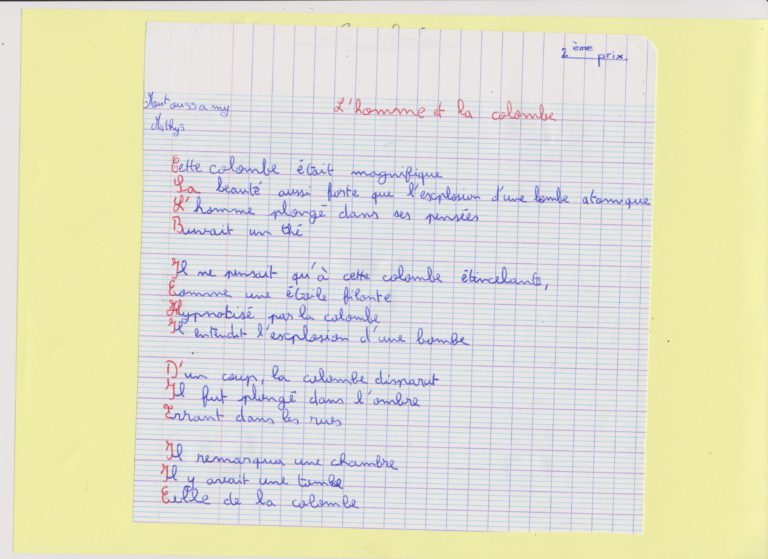 2ème prix.
Moutoussamy
Mathys
L'homme et la colombe
Cette colombe était magnifique
Sa beauté aussi forte que l'explosion d'une bombe atomique
L'homme plongé dans ses pensées
Buvait un thé
Il ne pensait qu'à cette colombe étincelante,
Comme une étoile filante
Hypnotisé par la colombe
Il entendit l'explosion d'une bombe
D'un coup, la colombe disparut
Il fut plongé dans l'ombre
Errant dans les rues
Il remarqua une chambre
Il y avait une tombe
Celle de la colombe